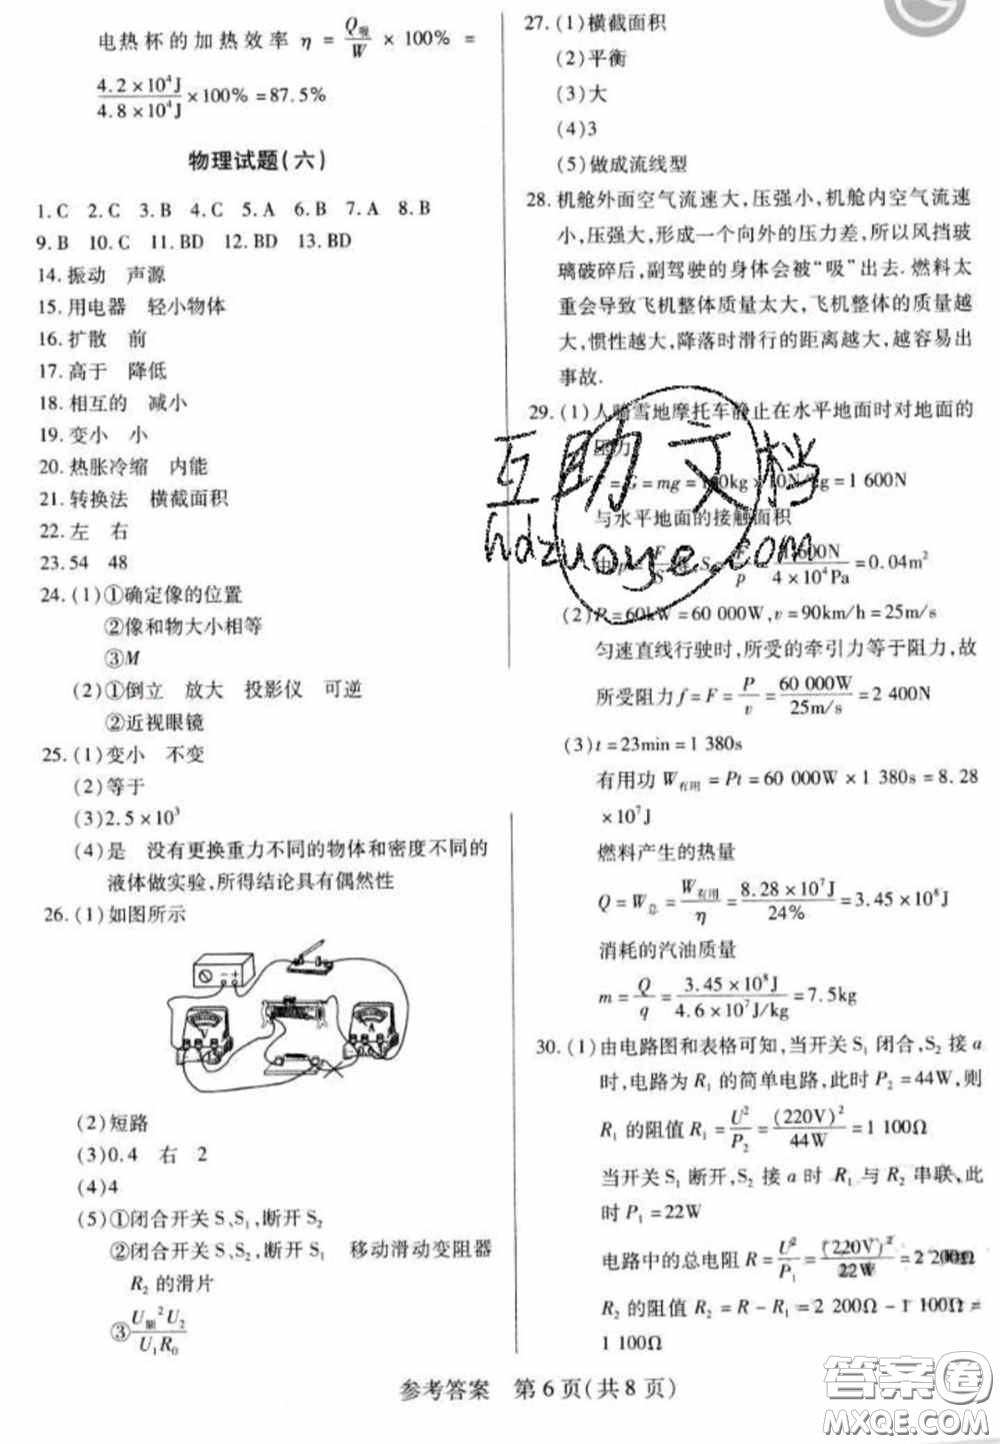 电热杯的加热效率 η = Q吸/W × 100% =
4.2×10⁴J/4.8×10⁴J ×100% =87.5%
物理试题(六)
1.C 2.C 3.B 4.C 5.A 6.B 7.A 8.B
9.B 10.C 11.BD 12.BD 13.BD
14.振动 声源
15.用电器 轻小物体
16.扩散 前
17.高于 降低
18.相互的 减小
19.变小 小
20.热胀冷缩 内能
21.转换法 横截面积
22.左 右
23.54 48
24.(1)①确定像的位置
②像和物大小相等
③M
(2)①倒立 放大 投影仪 可逆
②近视眼镜
25.(1)变小 不变
(2)等于
(3)2.5×10³
(4)是 没有更换重力不同的物体和密度不同的
液体做实验,所得结论具有偶然性
26.(1)如图所示
V
A
(2)短路
(3)0.4 右 2
(4)4
(5)①闭合开关 S、S₁,断开 S₂
②闭合开关 S、S₂,断开 S₁ 移动滑动变阻器
R₂ 的滑片
③U额²U₂/U₁R₀
27.(1)横截面积
(2)平衡
(3)大
(4)3
(5)做成流线型
28.机舱外面空气流速大,压强小,机舱内空气流速
小,压强大,形成一个向外的压力差,所以风挡玻
璃破碎后,副驾驶的身体会被“吸”出去.燃料太
重会导致飞机整体质量太大,飞机整体的质量越
大,惯性越大,降落时滑行的距离越大,越容易出
事故.
29.(1)人骑雪地摩托车静止在水平地面时对地面的
压力
= G = mg = 160kg × 10N/kg = 1 600N
与水平地面的接触面积
由 p = F/S 得,S = F/p = 1 600N/4×10⁴Pa = 0.04m²
(2)P = 60kW = 60 000W,v = 90km/h = 25m/s
匀速直线行驶时,所受的牵引力等于阻力,故
所受阻力 f = F = P/v = 60 000W/25m/s = 2 400N
(3)t = 23min = 1 380s
有用功 W有用 = Pt = 60 000W × 1 380s = 8.28
×10⁷J
燃料产生的热量
Q = W总 = W有用/η = 8.28×10⁷J/24% = 3.45×10⁸J
消耗的汽油质量
m = Q/q = 3.45×10⁸J/4.6×10⁷J/kg = 7.5kg
30.(1)由电路图和表格可知,当开关 S₁ 闭合,S₂ 接 a
时,电路为 R₁ 的简单电路,此时 P₂ = 44W,则
R₁ 的阻值 R₁ = U²/P₂ = (220V)²/44W = 1 100Ω
当开关 S₁ 断开,S₂ 接 a 时 R₁ 与 R₂ 串联,此
时 P₁ = 22W
电路中的总电阻 R = U²/P₁ = (220V)²/22W = 2 200Ω
R₂ 的阻值 R₂ = R − R₁ = 2 200Ω − 1 100Ω =
1 100Ω
参考答案 第 6 页(共 8 页)
互助文档
hdzuoye.com
答案圈
MXQE.COM